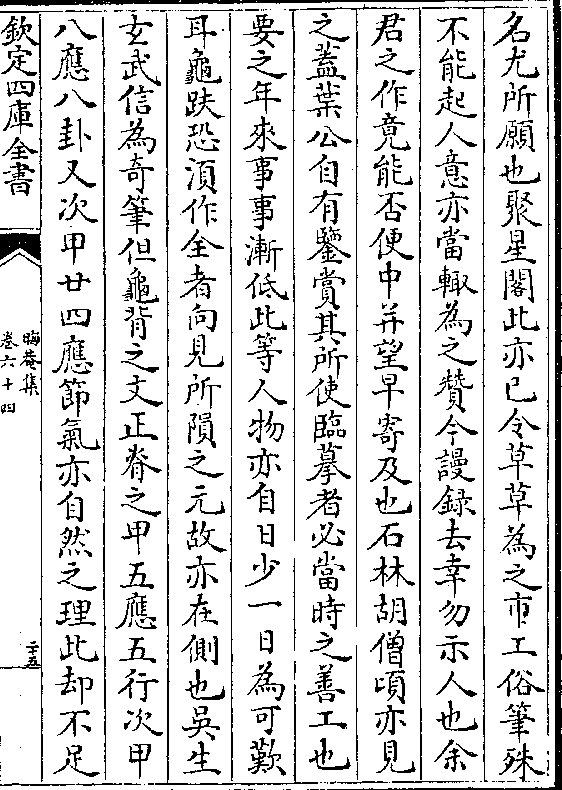 名尤所願也聚星閣此亦已令草草為之市工俗筆殊
不能起人意亦當輙為之贊今謾録去幸勿示人也余
君之作竟能否便中并望早寄及也石林胡僧頃亦見
之蓋葉公自有鑒賞其所使臨摹者必當時之善工也
要之年來事事漸低此等人物亦自日少一日為可歎
耳龜趺恐湏作全者向見所隕之元故亦在側也吳生
玄武信為奇筆但龜背之文正脊之甲五應五行次甲
八應八卦又次甲廿四應節氣亦自然之理此却不足
欽定四庫全書
晦菴集
卷六十四
二十五